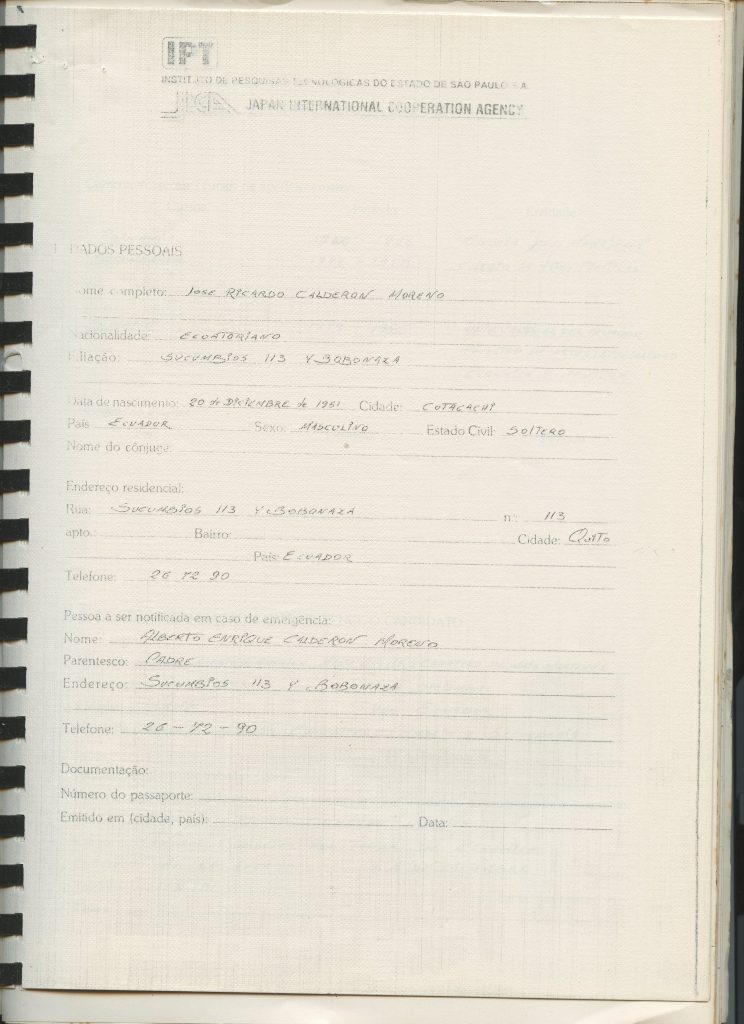 IPT
INSTITUTO DE PESQUISAS TECNOLÓGICAS DO ESTADO DE SÃO PAULO S.A.
JICA JAPAN INTERNATIONAL COOPERATION AGENCY
DADOS PESSOAIS
Nome completo: JOSE RICARDO CALDERON MORENO
Nacionalidade: ECUATORIANO
Filiação: SUCUMBIOS 113 Y BOBONAZA
Data de nascimento: 20 de DICIEMBRE de 1961 Cidade: COTACACHI
País ECUADOR Sexo: MASCULINO Estado Civil: SOLTERO
Nome do cônjuge:
Endereço residencial:
Rua: SUCUMBIOS 113 Y BOBONAZA n.º: 113
apto.: Bairro: Cidade: QUITO
País: ECUADOR
Telefone: 26 72 90
Pessoa a ser notificada em caso de emergência:
Nome: ALBERTO ENRIQUE CALDERON MORENO
Parentesco: PADRE
Endereço: SUCUMBIOS 113 Y BOBONAZA
Telefone: 26-72-90
Documentação:
Número do passaporte:
Emitido em (cidade, país): Data: